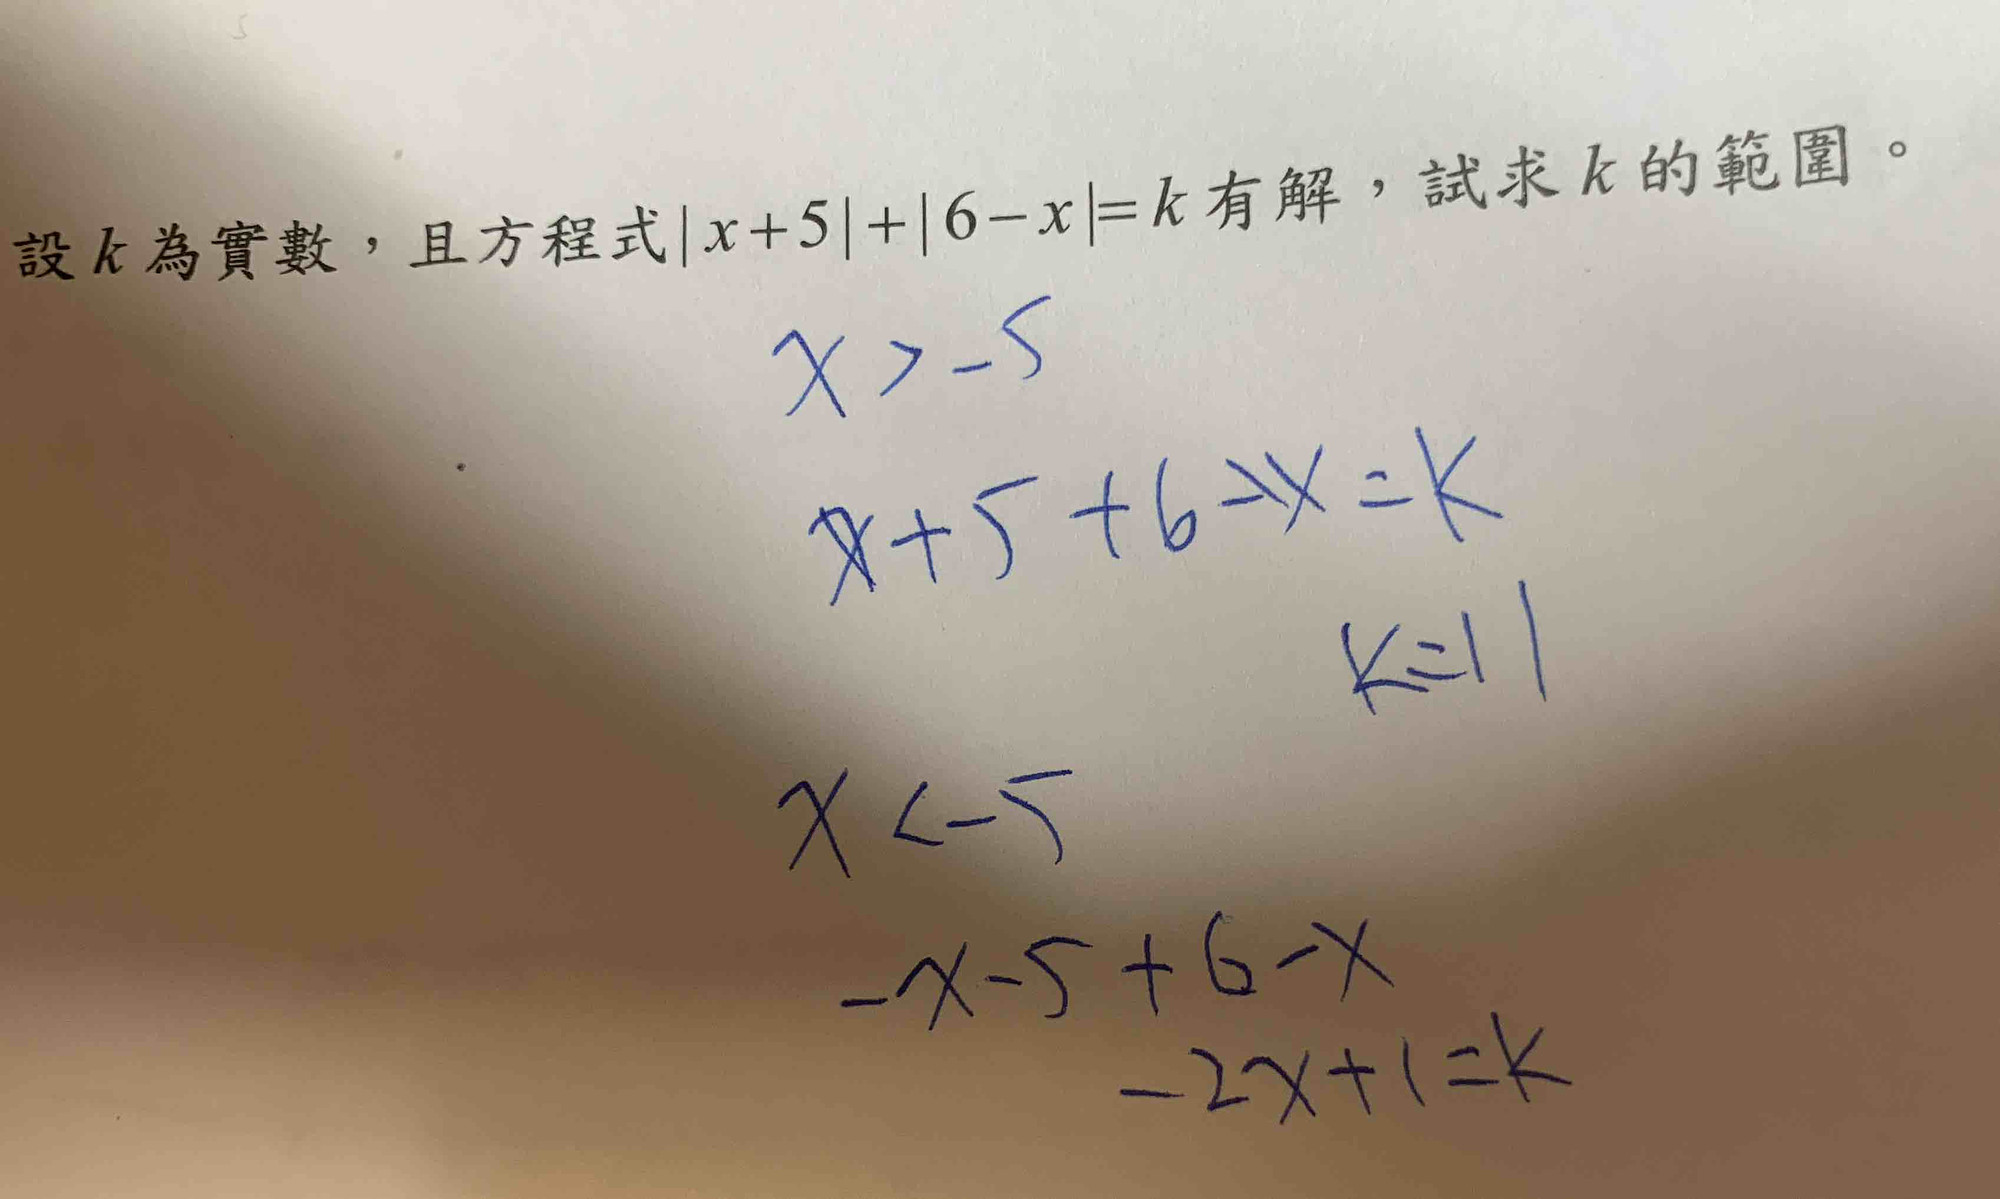 設k為實數，且方程式|x+5|+|6-x|=k有解，試求k的範圍。
x>-5
x+5+6-x=k
k=11
x<-5
-x-5+6-x
-2x+1=k